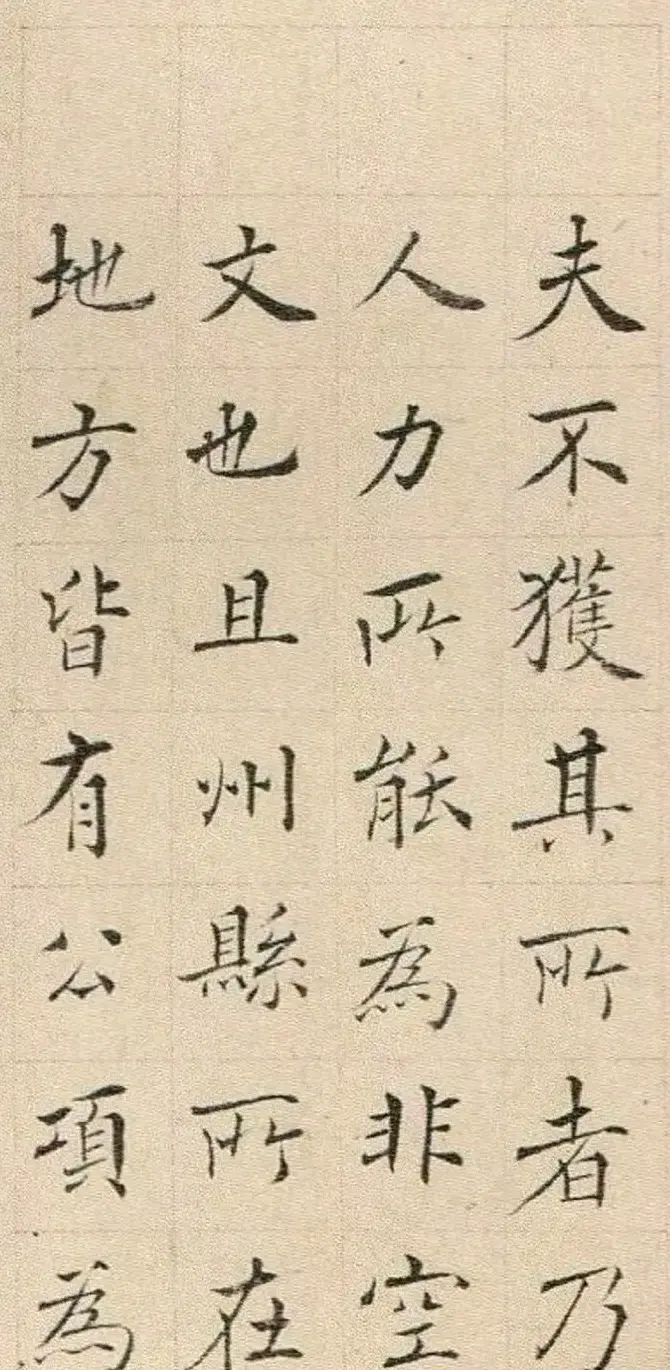 夫不獲其所者乃
人力所能為非空
文也且州縣所在
地方皆有公項為